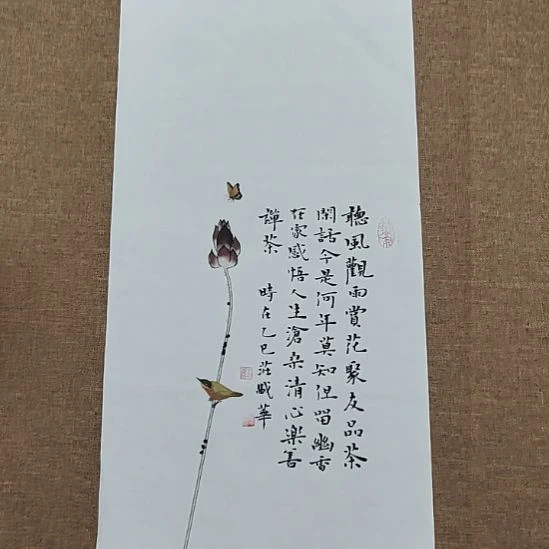 聽風觀雨賞花聚友品茶
閒話今是何年莫知但留幽香
在家感悟人生滄桑清心樂善
禪茶
時在乙巳莊盛華